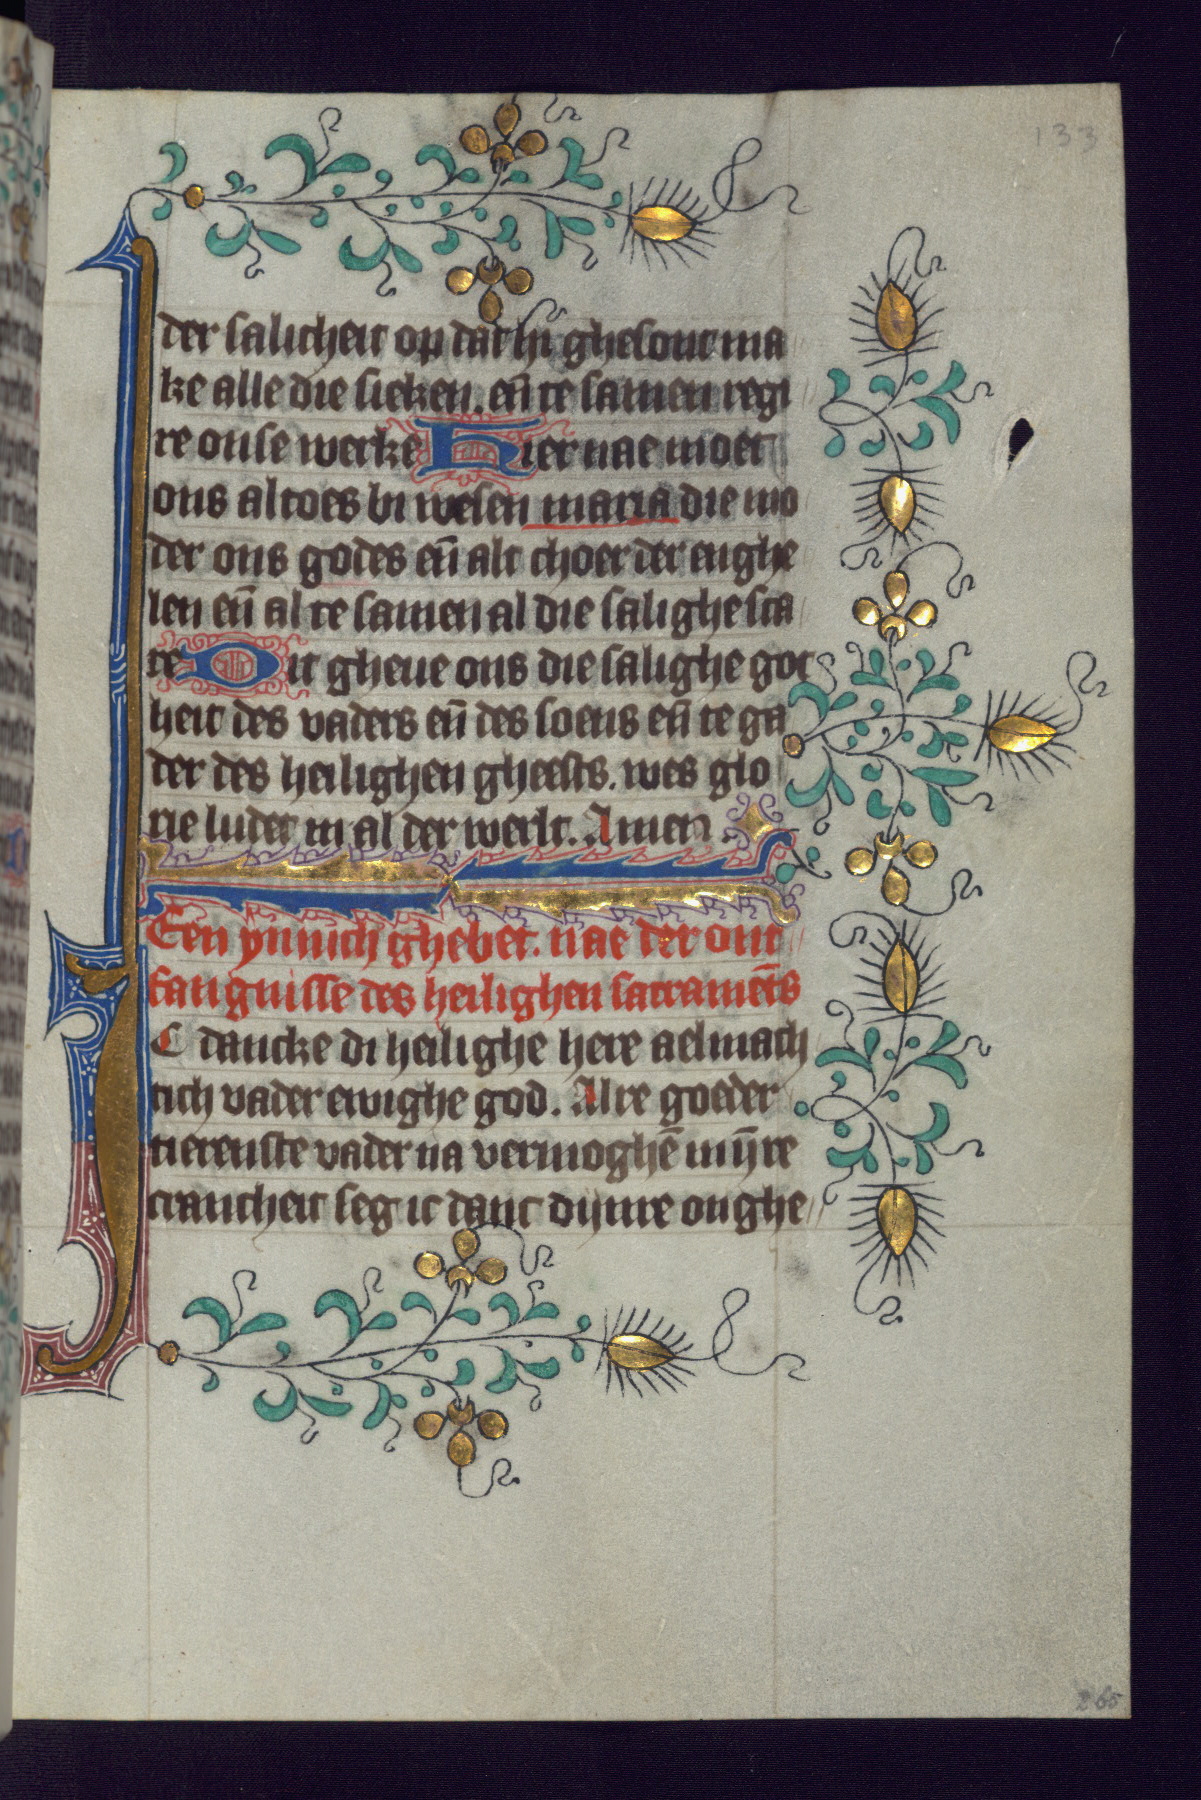 133
der salicheit op dat hi ghesont ma
ke alle die sieken. en̄ te samen regi
re onse werke Hier nae moet
ons altoes bi wesen maria die mo
der ons godes en̄ alt choer der enghe
len en̄ al te samen al die salighe sca
re Dit gheue ons die salighe got
heit des vaders en̄ des soens en̄ te ga
der des heilighen gheests. wes glo
rie ludet in al der werlt. Amen.
Een ynnich ghebet. nae der ont
fangnisse des heilighen sacramēts
IC dancke di heilighe here aelmach
tich vader ewighe god. Alre goeder
tierenste vader na vermoghē mijnre
crancheit seg ic danc dijnre onghe
265